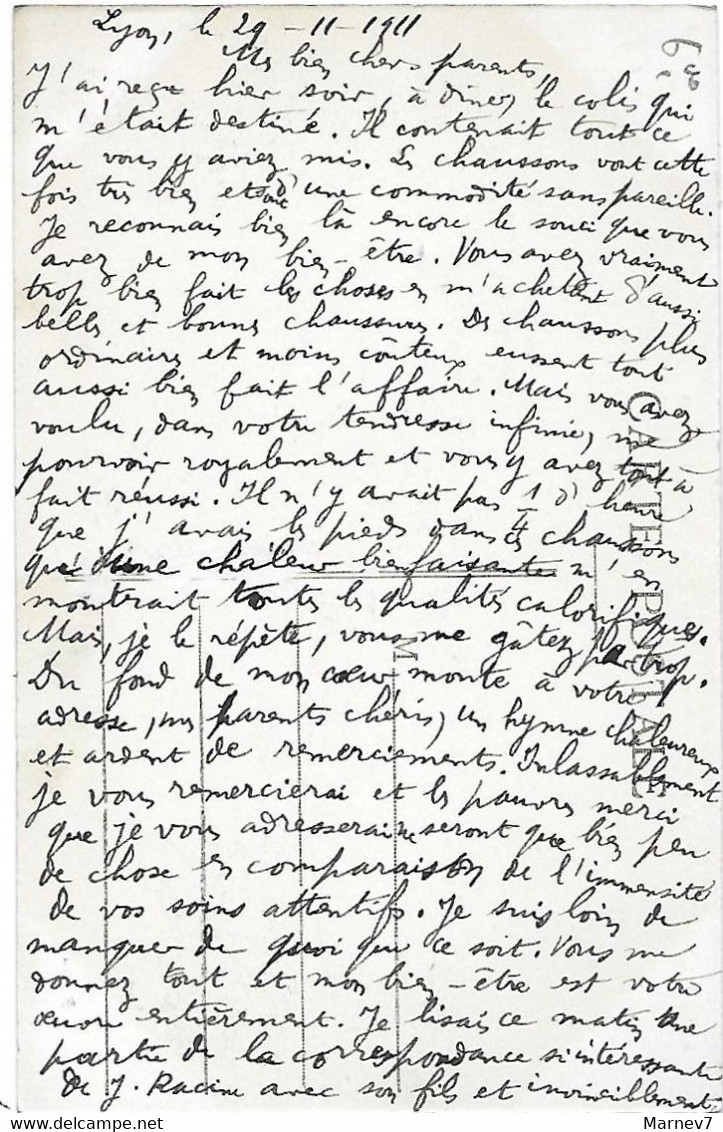 Lyon, le 29-11-1911
Mes bien chers parents,
J'ai reçu hier soir, à dîner, le colis qui
m'était destiné. Il contenait tout ce
que vous y aviez mis. Les chaussons vont cette
fois très bien et sont d'une commodité sans pareille.
Je reconnais bien là encore le souci que vous
avez de mon bien-être. Vous avez vraiment
trop bien fait les choses en m'achetant d'aussi
belles et bonnes chaussures. Des chaussons plus
ordinaires et moins coûteux eussent tout
aussi bien fait l'affaire. Mais vous avez
voulu, dans votre tendresse infinie, me
pourvoir royalement et vous y avez tout à
fait réussi. Il n'y avait pas 1/4 d'heure
que j'avais les pieds dans ces chaussons
qu'une chaleur bienfaisante m'en
montrait toutes les qualités calorifiques.
Mais, je le répète, vous me gâtez par trop.
Du fond de mon cœur monte à votre
adresse, mes parents chéris, un hymne chaleureux
et ardent de remerciements. Inlassablement
je vous remercierai et les pauvres merci
que je vous adresserai ne seront que bien peu
de chose en comparaison de l'immensité
de vos soins attentifs. Je suis loin de
manquer de quoi que ce soit. Vous me
donnez tout et mon bien-être est votre
œuvre entièrement. Je lisais ce matin une
partie de la correspondance si intéressante
de J. Racine avec son fils et invinciblement
CARTE POSTALE
M
Marnev7